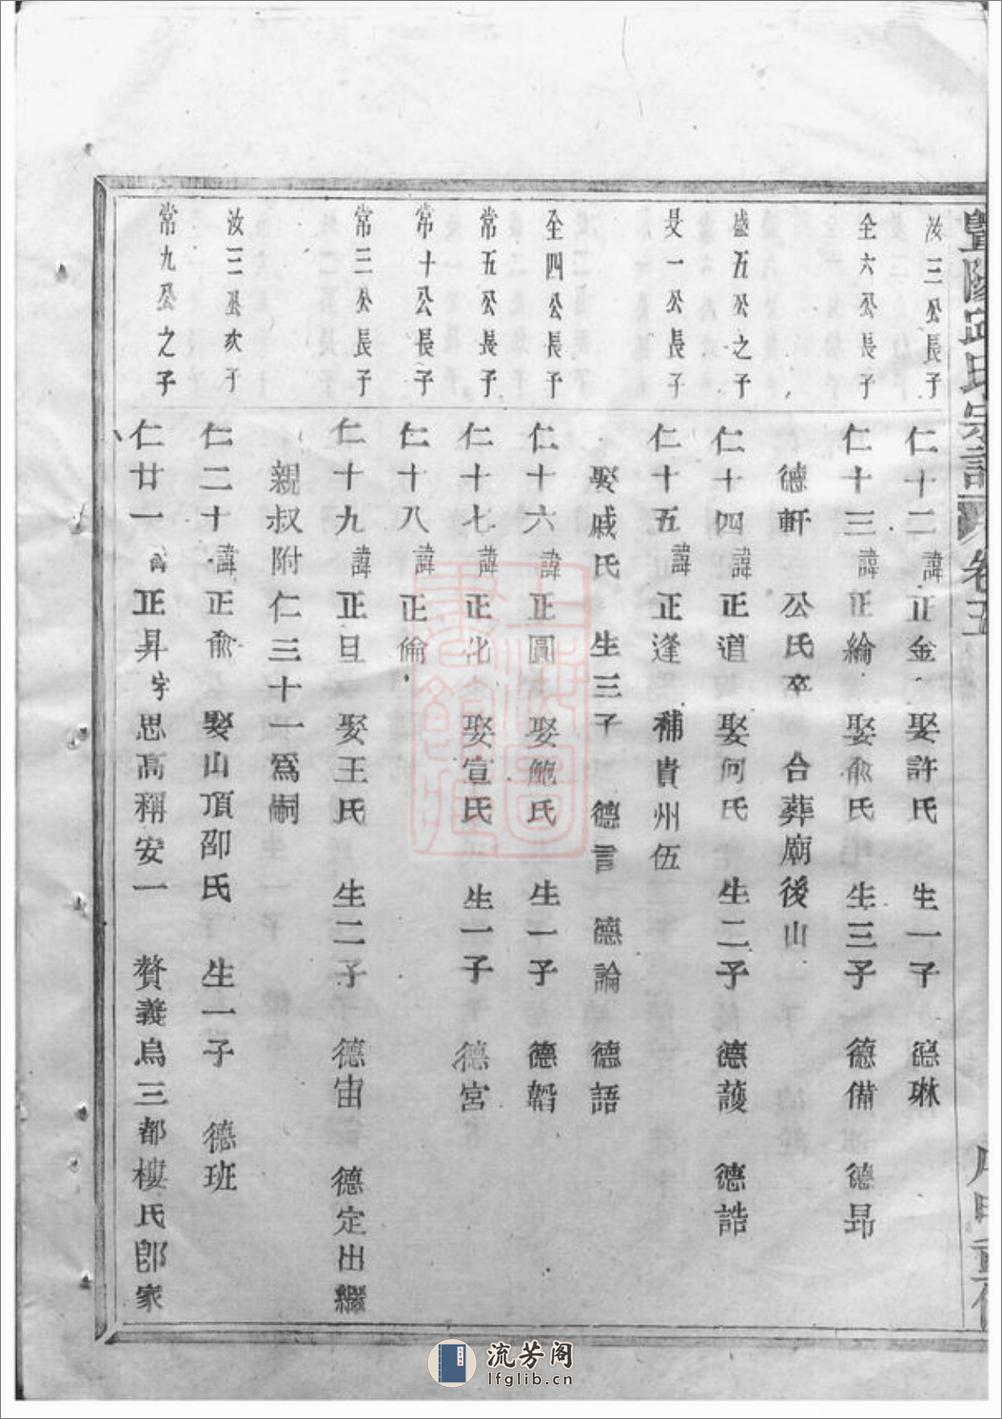 暨陽邱氏宗譜 卷五
汝三公長子 仁十二 諱正金 娶許氏 生一子 德琳
全六公長子 仁十三 諱正綸 娶俞氏 生三子 德備 德昂
德軒 公氏卒 合葬廟後山
盛五公之子 仁十四 諱正道 娶何氏 生二子 德護 德誥
文一公長子 仁十五 諱正逢 補貴州伍
娶戚氏 生三子 德言 德論 德語
全四公長子 仁十六 諱正圓 娶鮑氏 生一子 德韜
常五公長子 仁十七 諱正化 娶宣氏 生一子 德宮
常十公長子 仁十八 諱正倫
常三公長子 仁十九 諱正旦 娶王氏 生二子 德宙 德定出繼
親叔附仁三十一爲嗣
汝三公次子 仁二十 諱正俞 娶山頂邵氏 生一子 德班
常九公之子 仁廿一 諱正昇 字思高稱安一 贅義烏三都樓氏卽家
流芳阁
lfglib.cn